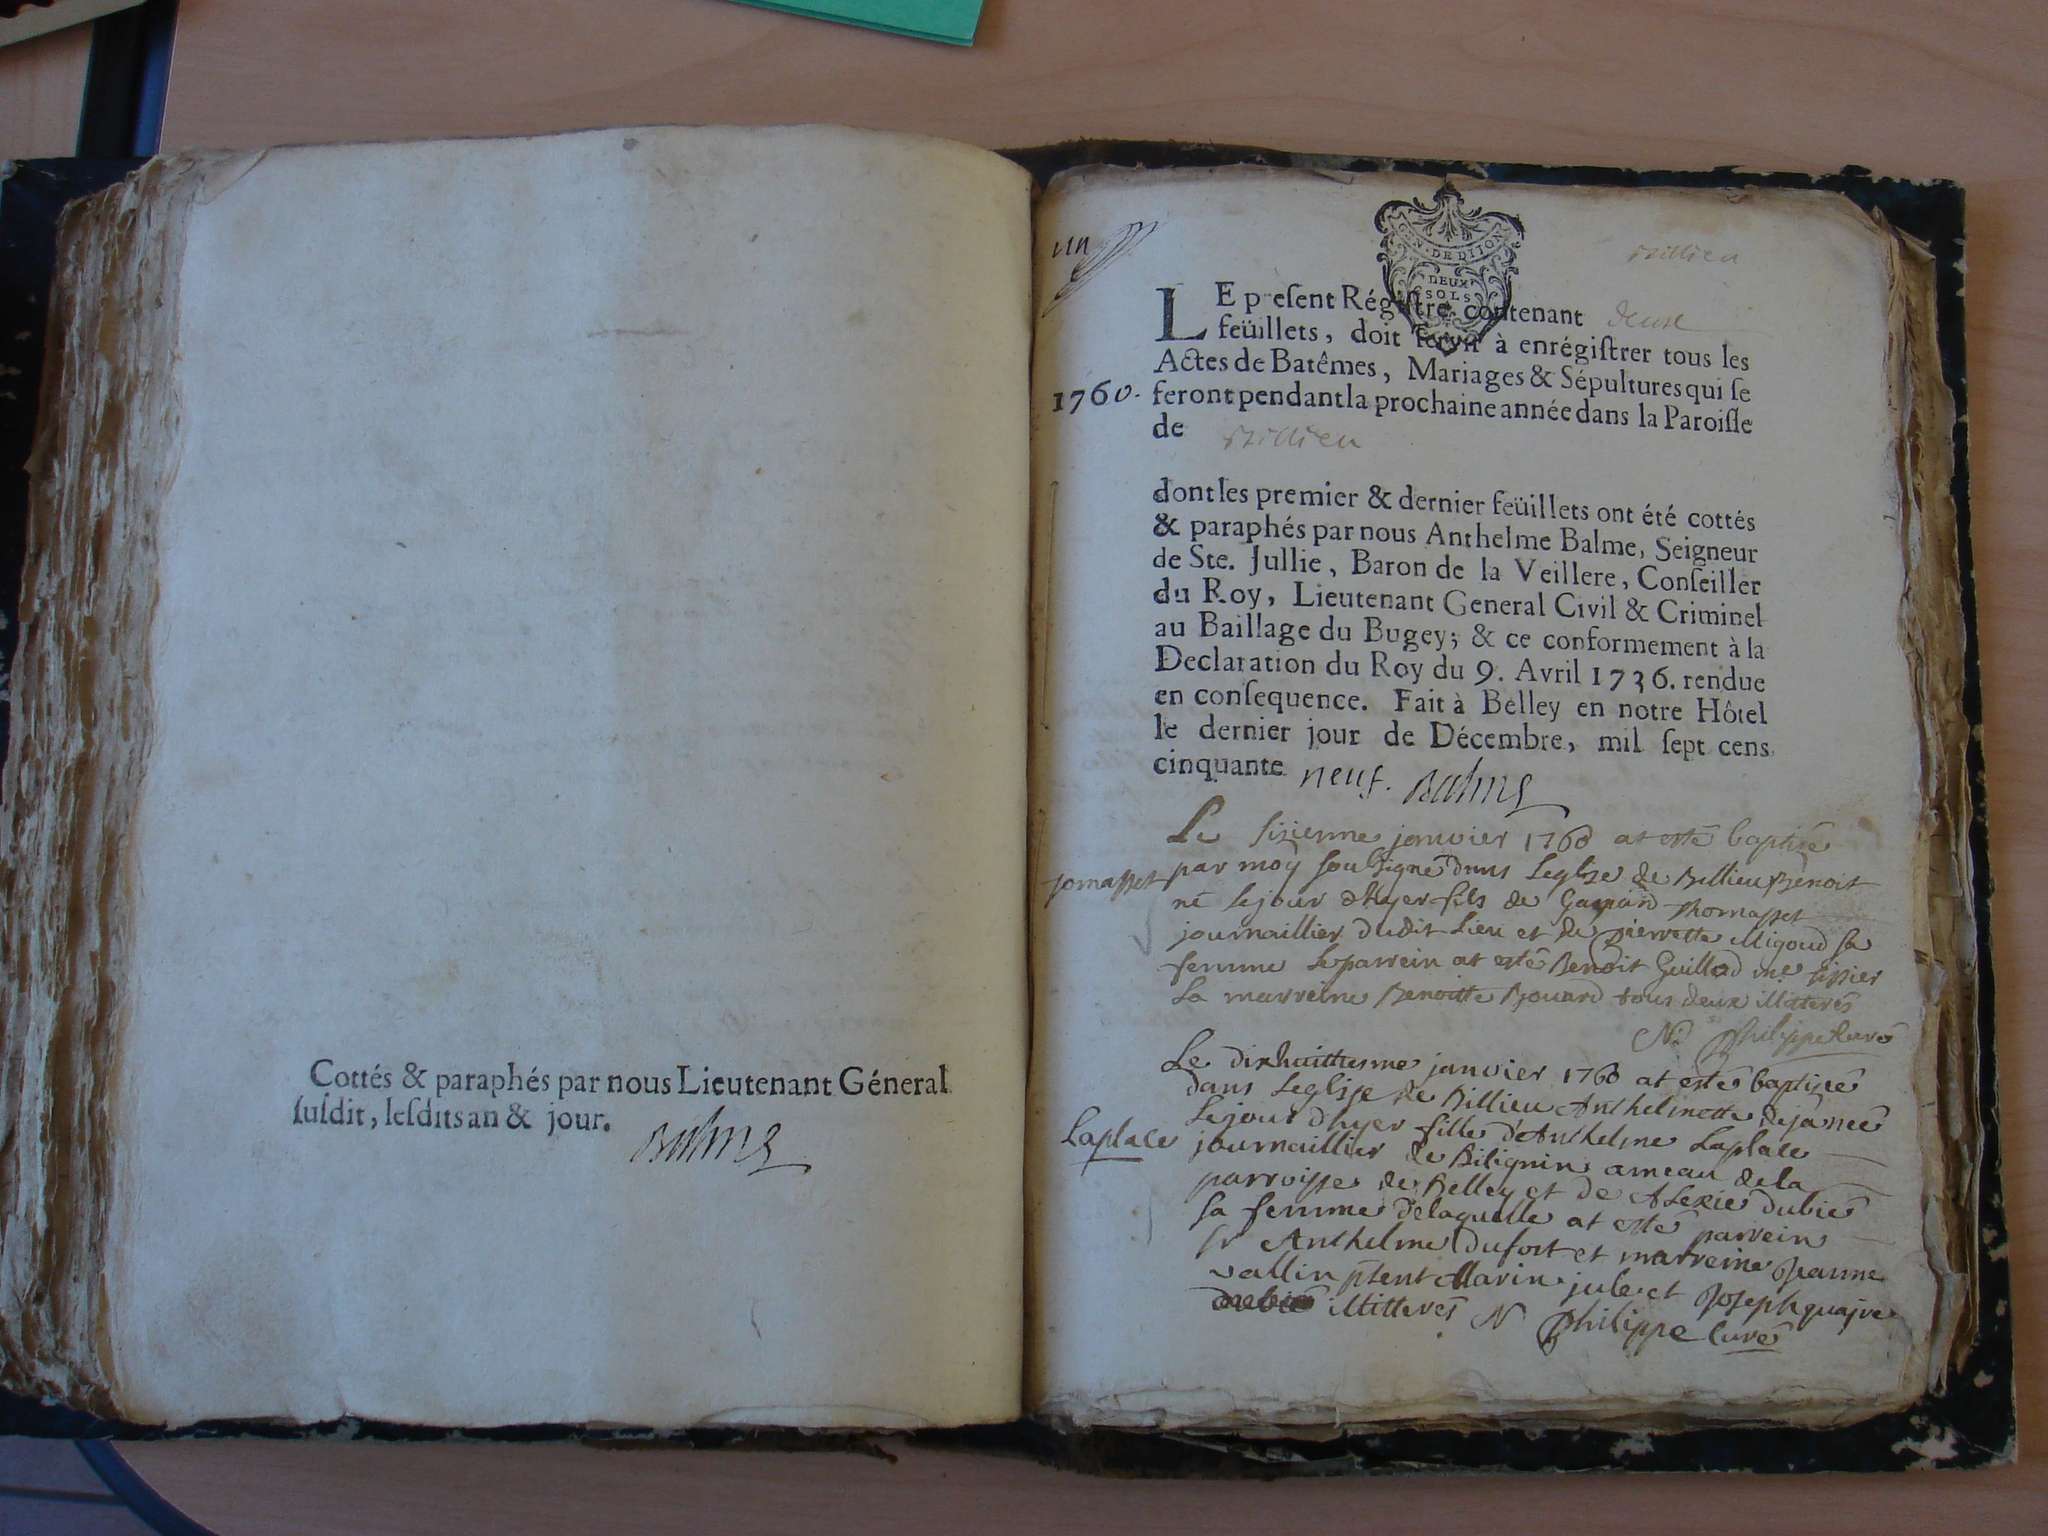 Cottés & paraphés par nous Lieutenant Géneral
ſuſdit, leſdits an & jour.
Balme
un
GEN. DE DIJON
DEUX
SOLS
Billieu
LE preſent Régiſtre contenant deux
feüillets, doit ſervir à enrégiſtrer tous les
Actes de Batêmes, Mariages & Sépultures qui ſe
1760. feront pendant la prochaine année dans la Paroiſſe
de Billieu
dont les premier & dernier feüillets ont été cottés
& paraphés par nous Anthelme Balme, Seigneur
de Ste. Jullie, Baron de la Veillere, Conſeiller
du Roy, Lieutenant General Civil & Criminel
au Baillage du Bugey; & ce conformement à la
Declaration du Roy du 9. Avril 1736. rendue
en conſequence. Fait à Belley en notre Hôtel
le dernier jour de Décembre, mil ſept cens
cinquante neuf. Balme
Le sizieme janvier 1760 at esté baptizé
par moy soubsigné dans Leglize de Billieu Benoit
né le jour dhyer fils de Thomasset
journaillier dudit Lieu et de pierrette Migoud sa
femme Le parrein at esté Benoit
La marreine Benoitte tous deux illiterés
N. Philippe Curé
Le dixhuittiesme janvier 1760 at esté baptizée
dans Leglize de Billieu Anthelmette née
Le jour dhyer fille d'Anthelme Laplace
Laplace journaillier de Bilignin ameau de la
parroisse de Belley et de Alexie dubié
sa femme delaquelle at esté parrein
sr Anthelme Dufort et marreine Jeanne
vallin Marin et Joseph
illitterés N Philippe Curé